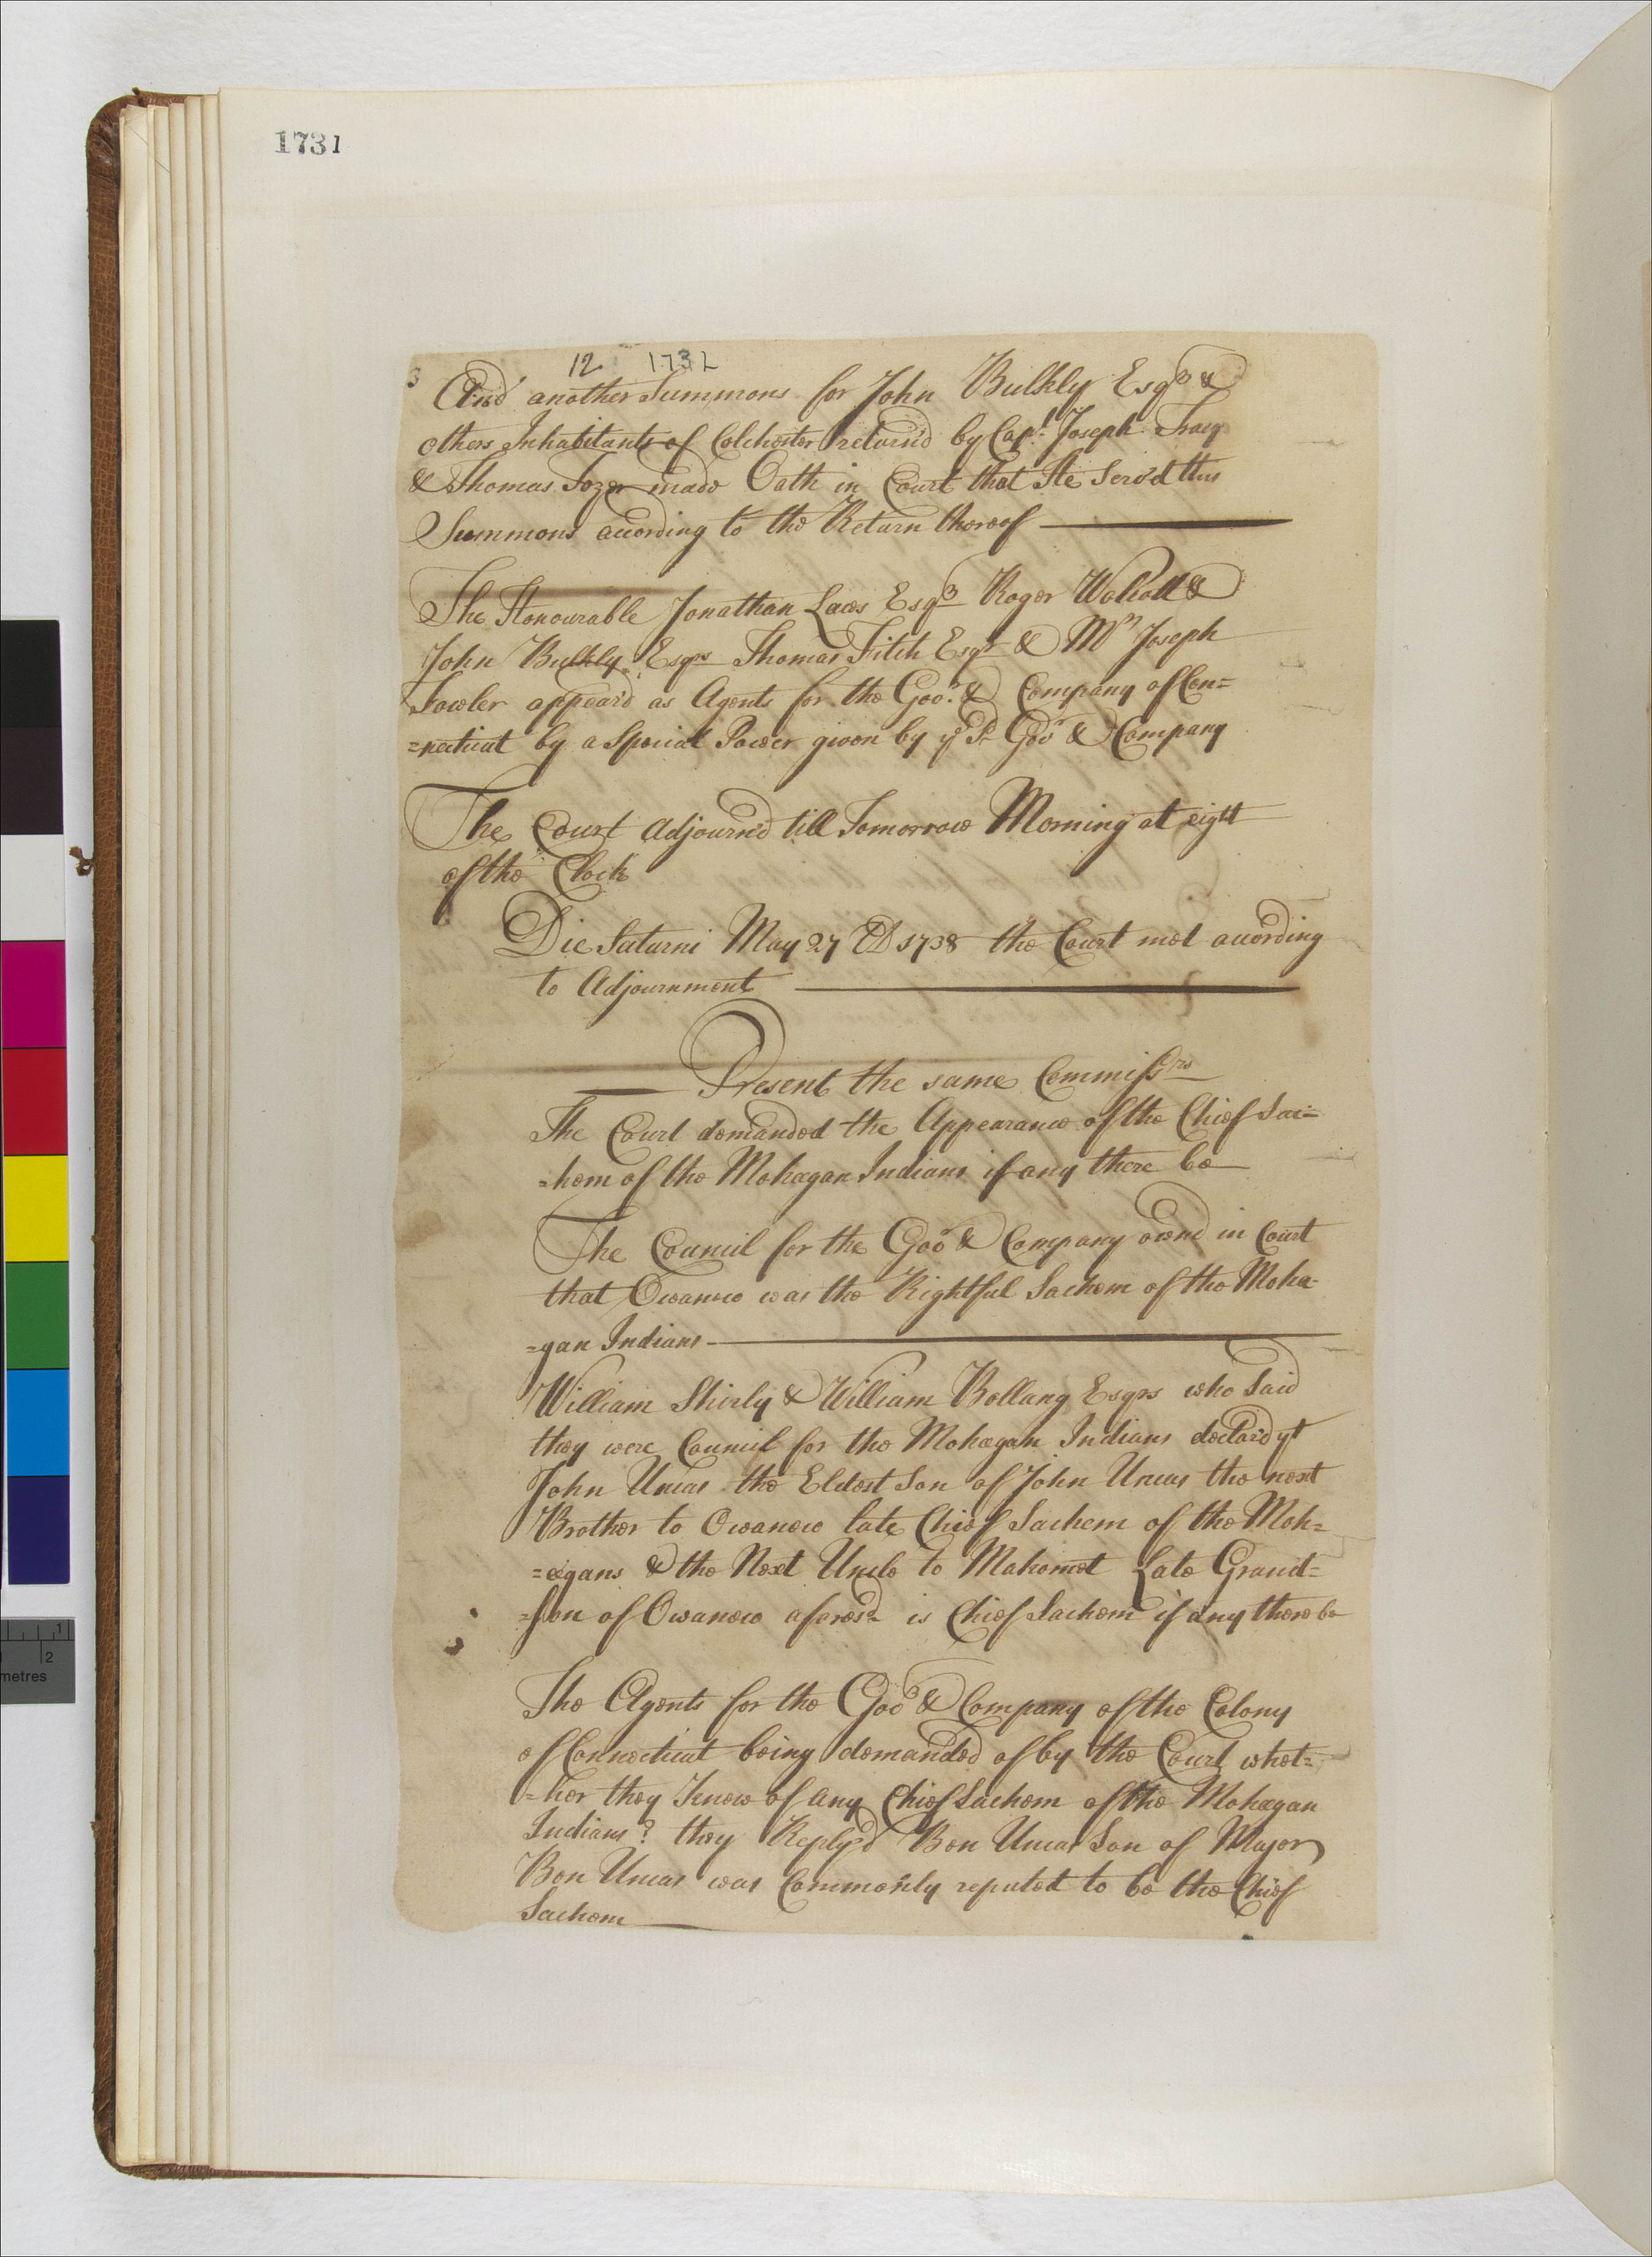 1731
12 1732
3
And another Summons for John Bulkly Esqr &
others Inhabitants of Colchester return'd by Capt. Joseph Tracy
& Thomas Tozer made Oath in Court that He Serv'd this
Summons according to the Return thereof
The Honourable Jonathan Laws Esqr Roger Wolcott &
John Bulkly Esqrs Thomas Fitch Esqr & Mr Joseph
Fowler appear'd as Agents for the Govr. & Company of Con=
=necticut by a Special Power given by ye Sd Govr & Company
The Court Adjourn'd till Tomorrow Morning at eight
of the Clock
Die Saturni May 27 AD 1738 the Court met according
to Adjournment
Present the same Commissrs
The Court demanded the Appearance of the Chief Sac=
=hem of the Mohagan Indians if any there be
The Council for the Govr & Company own'd in Court
that Owaneco was the Rightful Sachem of the Moha-
=gan Indians
William Shirly & William Bollang Esqrs who Said
they were Council for the Mohegan Indians declar'd yt
John Uncas the Eldest Son of John Uncas the next
Brother to Owaneco late Chief Sachem of the Moh=
=egans & the Next Uncle to Mahomet Late Grand=
=son of Owaneco aforesd is Chief Sachem if any there be
The Agents for the Govr & Company of the Colony
of Connecticut being demanded of by the Court whet=
=her they Know of any Chief Sachem of the Mohegan
Indians? they Reply'd Ben Uncas Son of Major
Ben Uncas was Commonly reputed to be the Chief
Sachem
metres
1
2